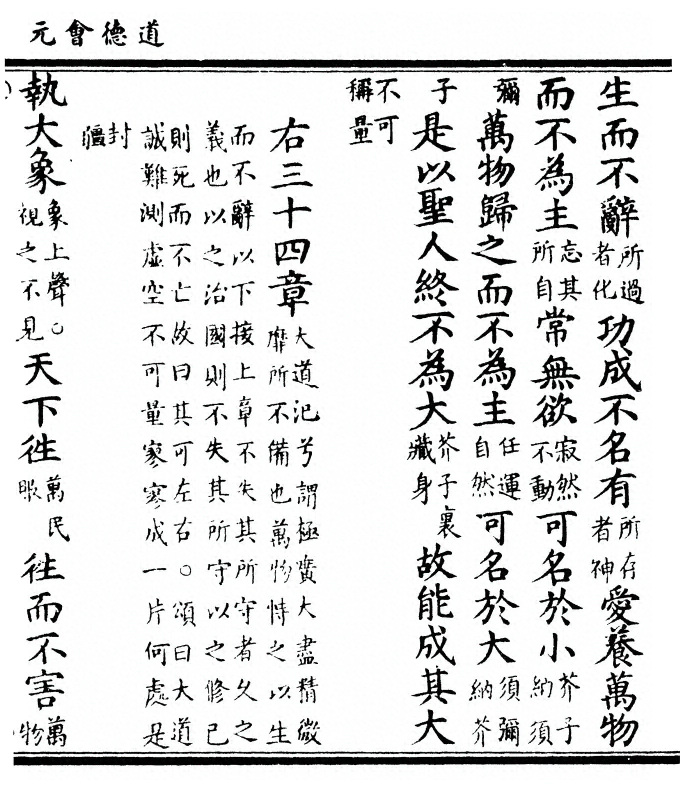 道德會元
生而不辭所過者化功成不名有所存者神愛養萬物
而不為主忘其所自常無欲寂然不動可名於小芥子納須
彌萬物歸之而不為主任運自然可名於大須彌納芥
子是以聖人終不為大芥子裏藏身故能成其大
不可稱量
右三十四章大道汜兮謂極廣大盡精微靡所不備也萬物恃之以生
而不辭以下接上章不失其所守者久之義也以之治國則不失其所守以之修己
則死而不亡故曰其可左右○頌曰大道誠難測虛空不可量寥寥成一片何處是
封疆
執大象象上聲○視之不見天下徃萬民眼徃而不害萬物